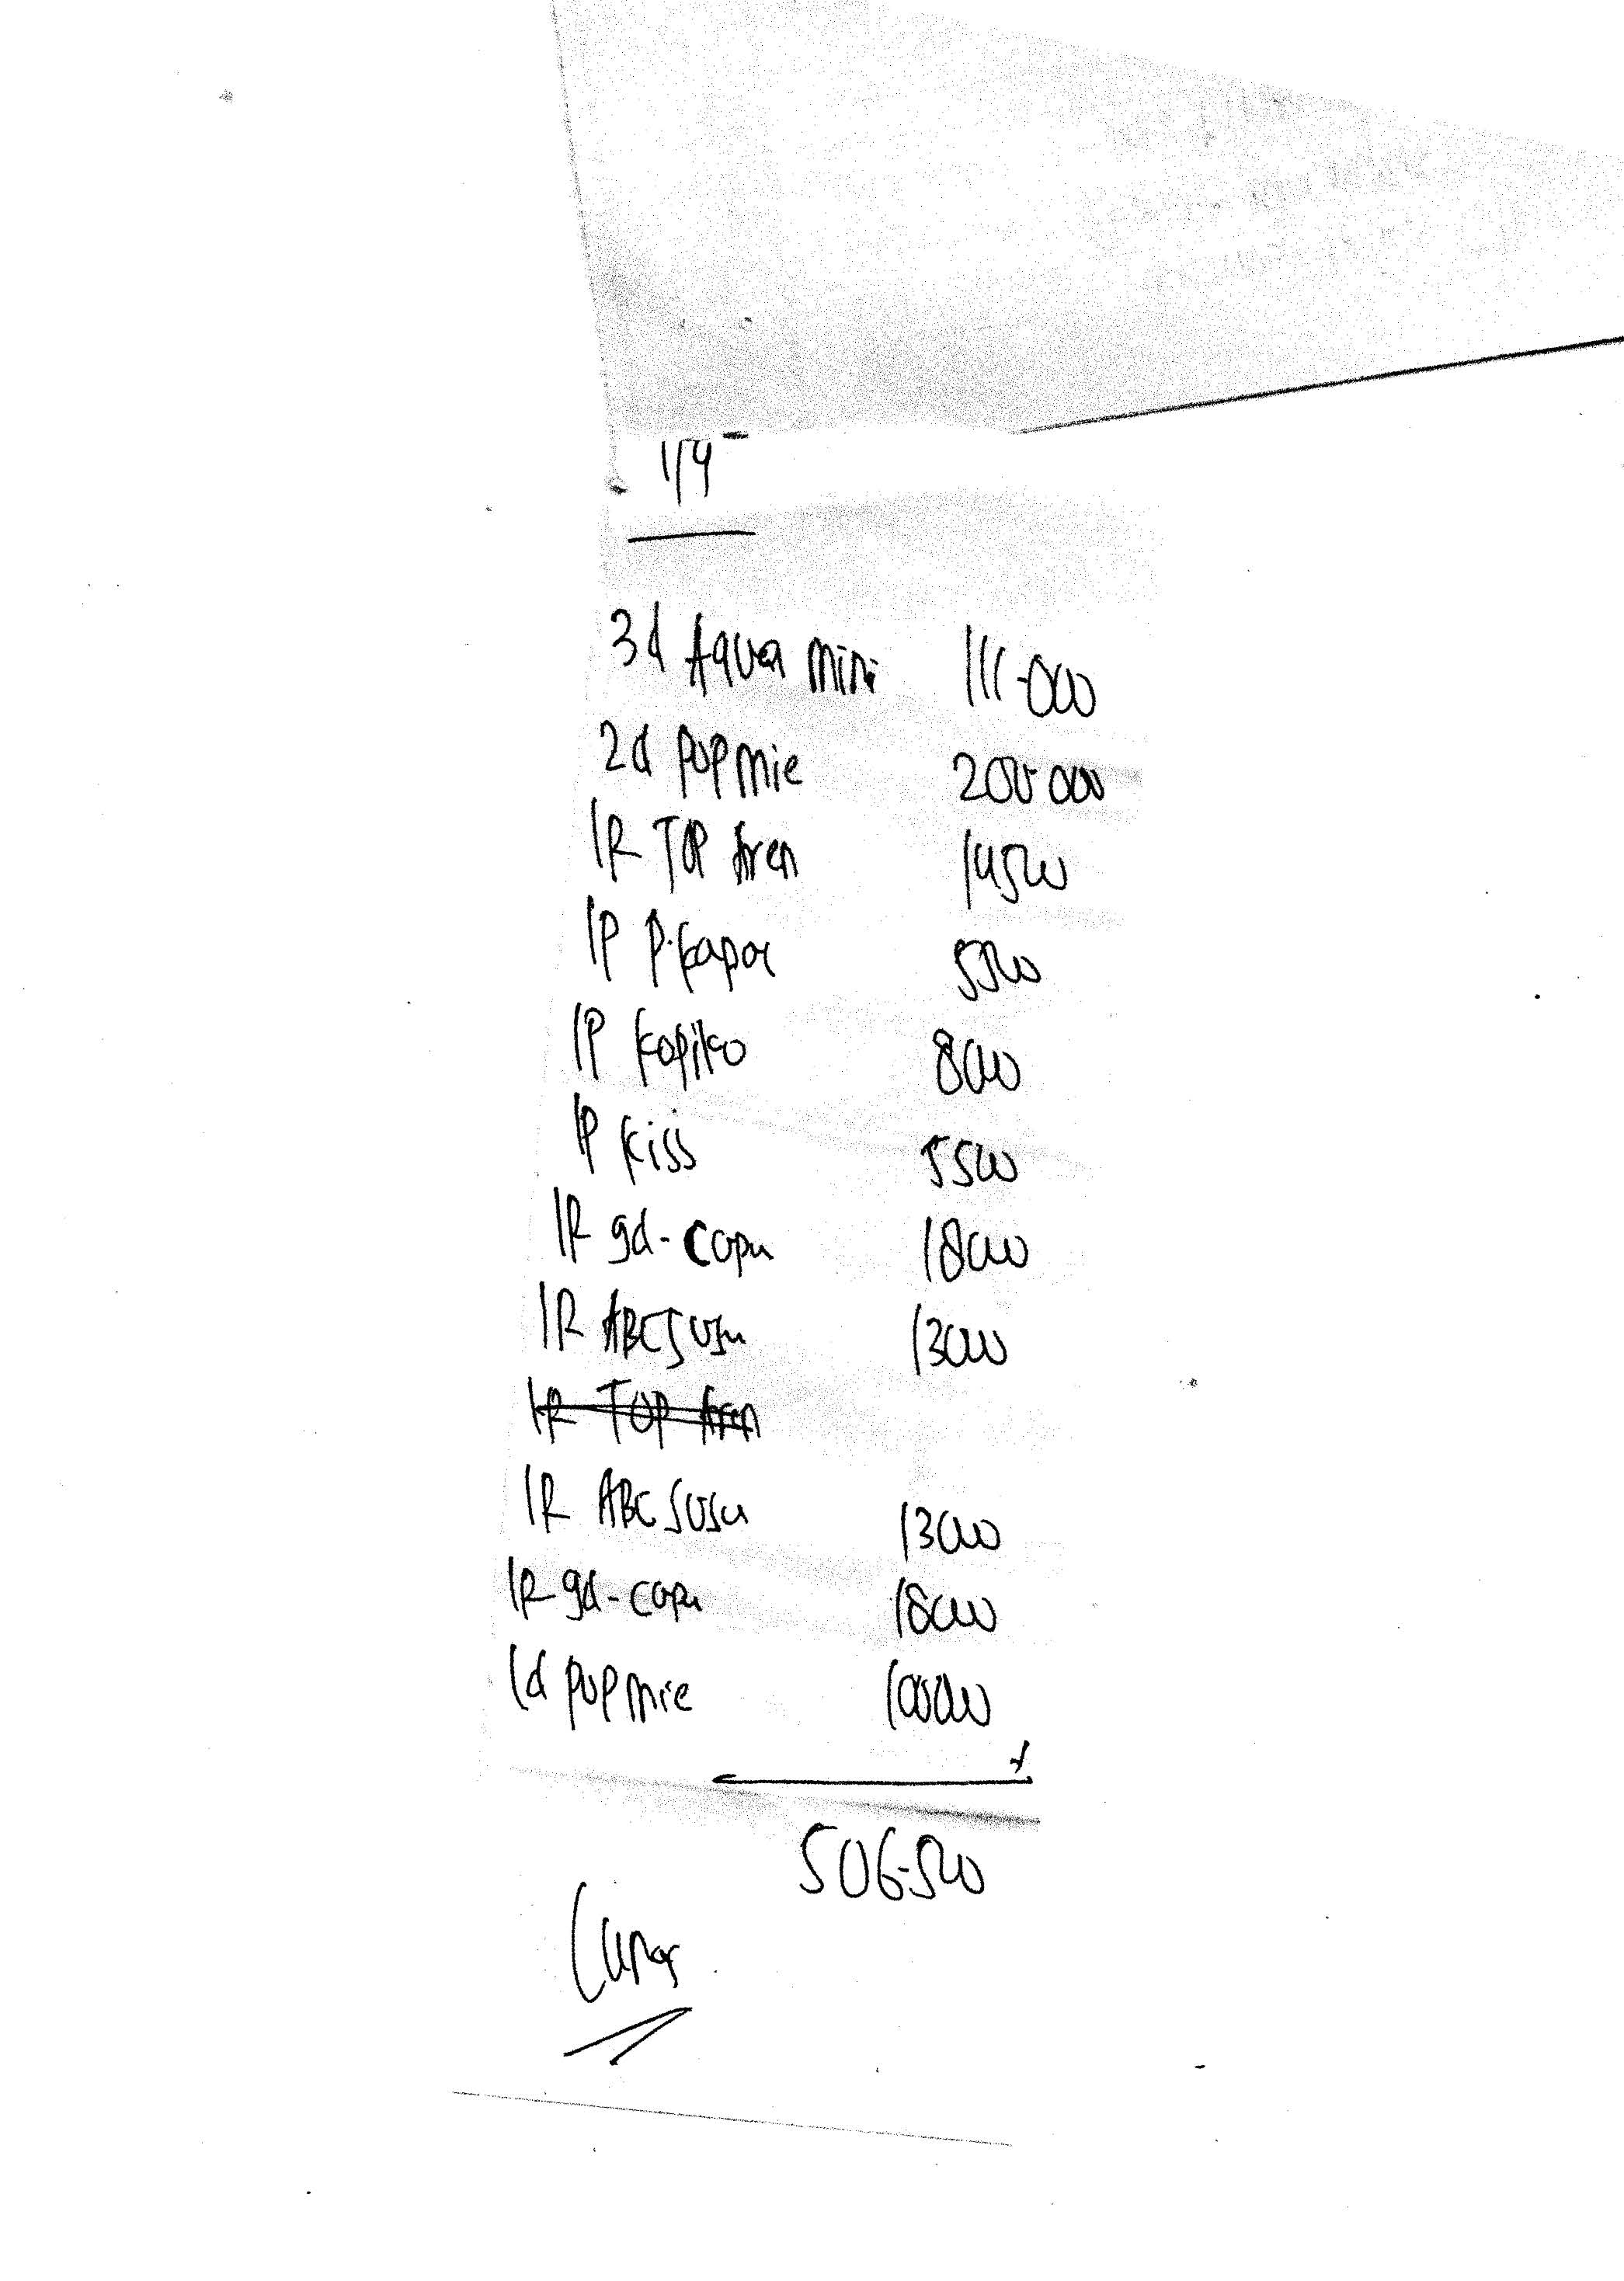 1/4
3d Aqua mini 111-000
2d pop mie 200 000
1R TOP Aren 14500
1P P. Kapar 5500
1P kopiko 8000
1P kiss 5500
1R gd-copu 18000
1R ABC SUSU 13000
1R TOP Aren
1R ABC SUSU 13000
1R gd-copu 18000
1d pop mie 100000
506-500
Lunas